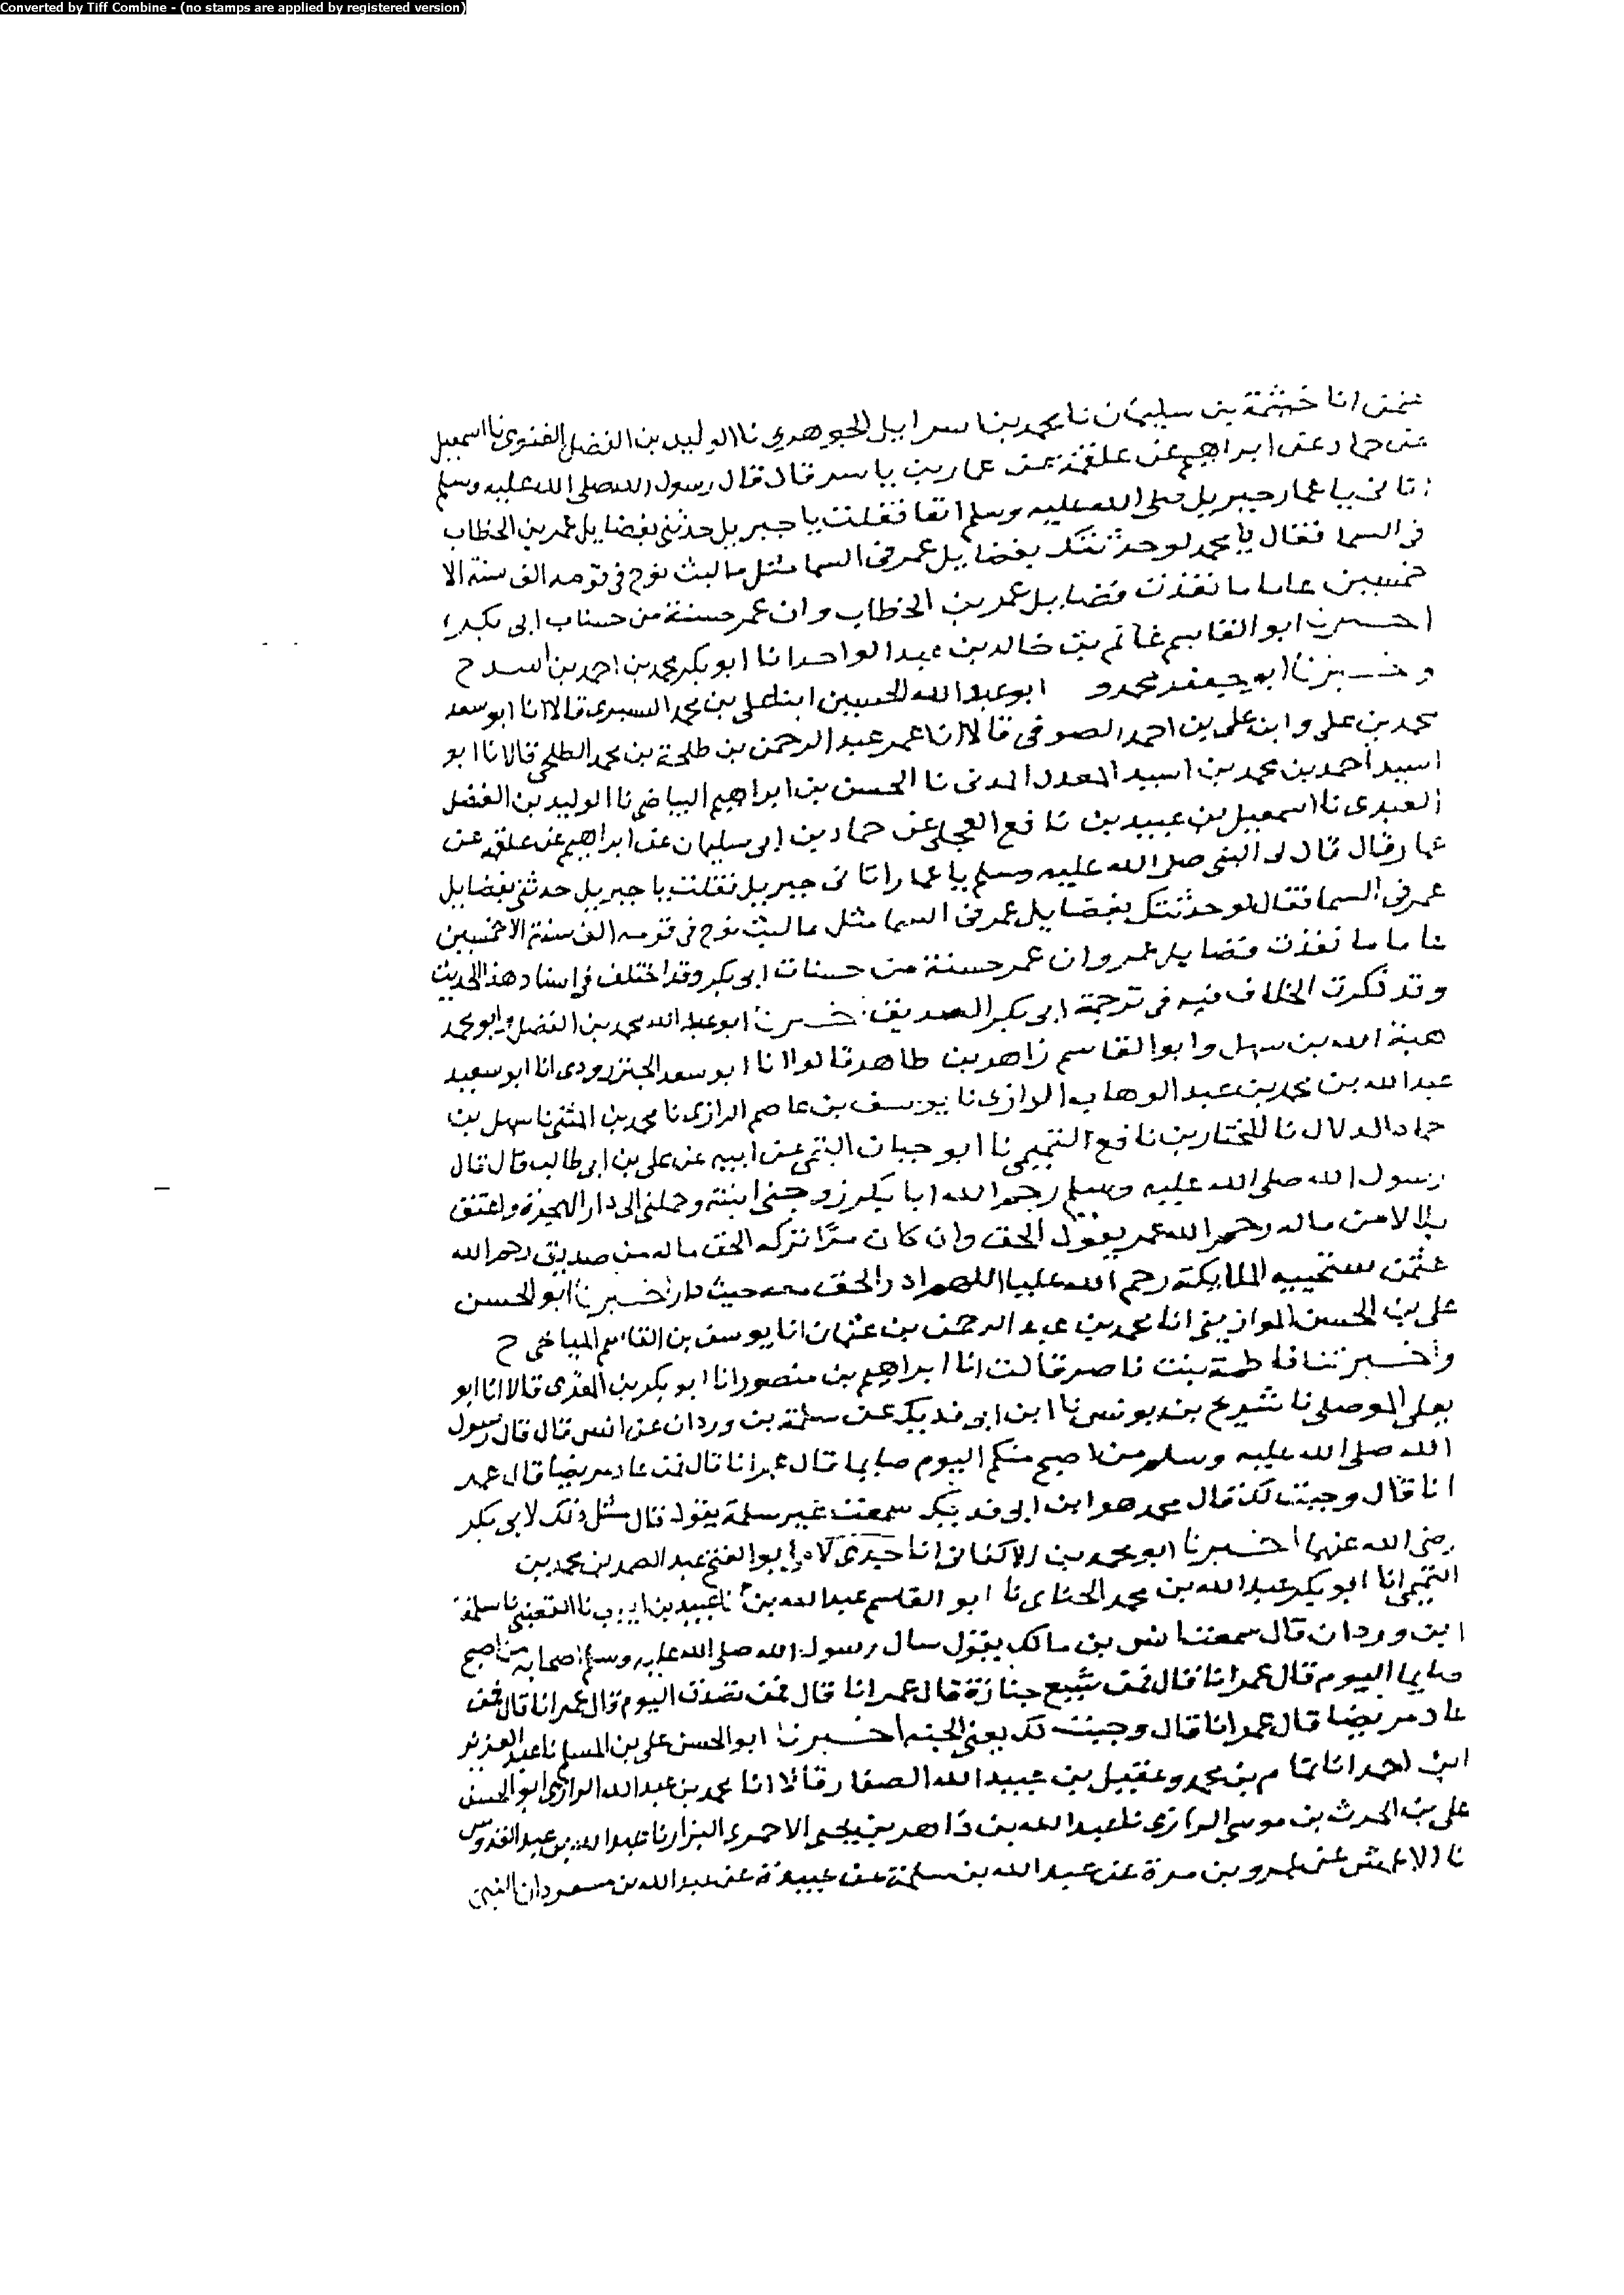 Converted by Tiff Combine - (no stamps are applied by registered version)
عثمن انا خيثمة بن سليمان نا محمد بن اسرايل الجوهري نا الوليد بن الفضل الغنوى نا اسمعيل
عن حماد عن ابراهيم عن علقمة عن عمار بن ياسر قال قال رسول الله صلى الله عليه وسلم
اتانى يا عمار جبريل صلى الله عليه وسلم انفا فقلت يا جبريل حدثنى بفضايل عمر بن الخطاب
فى السما فقال يا محمد لو حدثتك بفضايل عمر فى السما مثل ما لبث نوح فى قومه الف سنة الا
خمسين عاما ما نفذت فضايل عمر بن الخطاب وان عمر حسنة من حسنات ابى بكر
اخبرنا ابو القاسم غانم بن خالد بن عبد الواحد انا ابو بكر محمد بن احمد بن اسد ح
واخبرنا ابو جعفر محمد و ابو عبد الله الحسين ابنا على بن محمد السيرى قالا انا ابو سعد
محمد بن على وابنه على بن احمد الصوفى قالا انا عمر عبد الرحمن بن طلحة بن محمد الطلحى قالا نا ابو
اسيد احمد بن محمد بن اسيد المعدل المدنى نا الحسن بن ابراهيم البياضى نا الوليد بن الفضل
العبدى نا اسمعيل بن عبيد بن نافع العجلى عن حماد بن ابى سليمان عن ابراهيم عن علقمه عن
عمار قال قال لى النبى صلى الله عليه وسلم يا عمار اتانى جبريل فقلت يا جبريل حدثنى بفضايل
عمر فى السما فقال لو حدثتك بفضايل عمر فى السما مثل ما لبث نوح فى قومه الف سنة الا خمسين
عاما ما نفذت فضايل عمر وان عمر حسنة من حسنات ابى بكر وقد اختلف فى اسناد هذا الحديث
وقد ذكرت الخلاف فيه فى ترجمة ابى بكر الصديق اخبرنا ابو عبد الله محمد بن الفضل وابو محمد
هبة الله بن سهل وابو القاسم زاهر بن طاهر قالوا انا ابو سعد الجنزرودى انا ابو سعيد
عبد الله بن محمد بن عبد الوهاب الرازى نا يوسف بن عاصم الرازى نا محمد بن المثنى نا سهل بن
حماد الدلال نا المختار بن نافع التميمى نا ابو حيان التيمى عن ابيه عن على بن ابى طالب قال قال
رسول الله صلى الله عليه وسلم رحم الله ابا بكر زوجنى ابنته وحملنى الى دار الهجرة واعتق
بلالا من ماله رحم الله عمر يقول الحق وان كان مرا تركه الحق ماله من صديق رحم الله
عثمن تستحييه الملايكة رحم الله عليا اللهم ادر الحق معه حيث دار اخبرنا ابو الحسن
على بن الحسن الموازينى انا محمد بن عبد الرحمن بن عثمان انا يوسف بن القاسم الميانجى ح
واخبرتنا فاطمة بنت ناصر قالت انا ابراهيم بن منصور انا ابو بكر بن المقرى قالا انا ابو
يعلى الموصلى نا شريح بن يونس نا ابن ابى فديك عن سلمة بن وردان عن انس قال قال رسول
الله صلى الله عليه وسلم من اصبح منكم اليوم صايما قال عمر انا قال فمن عاد مريضا قال عمر
انا قال وجبت لك قال محمد هو ابن ابى فديك سمعت غير سلمة يقول قال مثل ذلك لابى بكر
رضى الله عنهما اخبرنا ابو محمد بن الاكفانى انا جدى لامى ابو الفتح عبد الصمد بن محمد بن
التميمى انا ابو بكر عبد الله بن محمد الحناى نا ابو القاسم عبد الله بن نا عبيد بن ايوب نا القعنبى نا سلمة
ابن وردان قال سمعت انس بن مالك يقول سال رسول الله صلى الله عليه وسلم اصحابه من اصبح
صايما اليوم قال عمر انا قال فمن شيع جنازة قال عمر انا قال فمن تصدق اليوم قال عمر انا قال فمن
عاد مريضا قال عمر انا قال وجبت لك يعنى الجنه اخبرنا ابو الحسن على بن المسلم نا عبد العزيز
ابن احمد انا تمام بن محمد وعقيل بن عبيد الله الصفار قالا انا محمد بن عبد الله الرازى ابو الحسن
على بن الحرث بن موسى الرازى نا عبد الله بن داهر بن يحيى الاحمرى البزار نا عبد الله بن عبد القدوس
نا الاعمش عن عمرو بن مرة عن عبد الله بن سلمة عن عبيدة عن عبد الله بن مسعود ان النبى